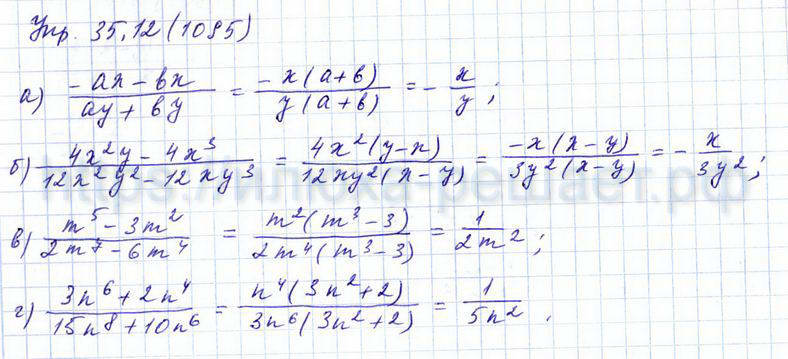 Упр. 35.12 (1085)
а) (-ax - bx)/(ay + by) = (-x(a+b))/(y(a+b)) = - x/y;
б) (4x²y - 4x³)/(12x²y² - 12xy³) = (4x²(y-x))/(12xy²(x-y)) = (-x(x-y))/(3y²(x-y)) = - x/(3y²);
в) (m⁵ - 3m²)/(2m⁷ - 6m⁴) = (m²(m³-3))/(2m⁴(m³-3)) = 1/(2m²);
г) (3n⁶ + 2n⁴)/(15n⁸ + 10n⁶) = (n⁴(3n²+2))/(3n⁶(3n²+2)) = 1/(5n²).